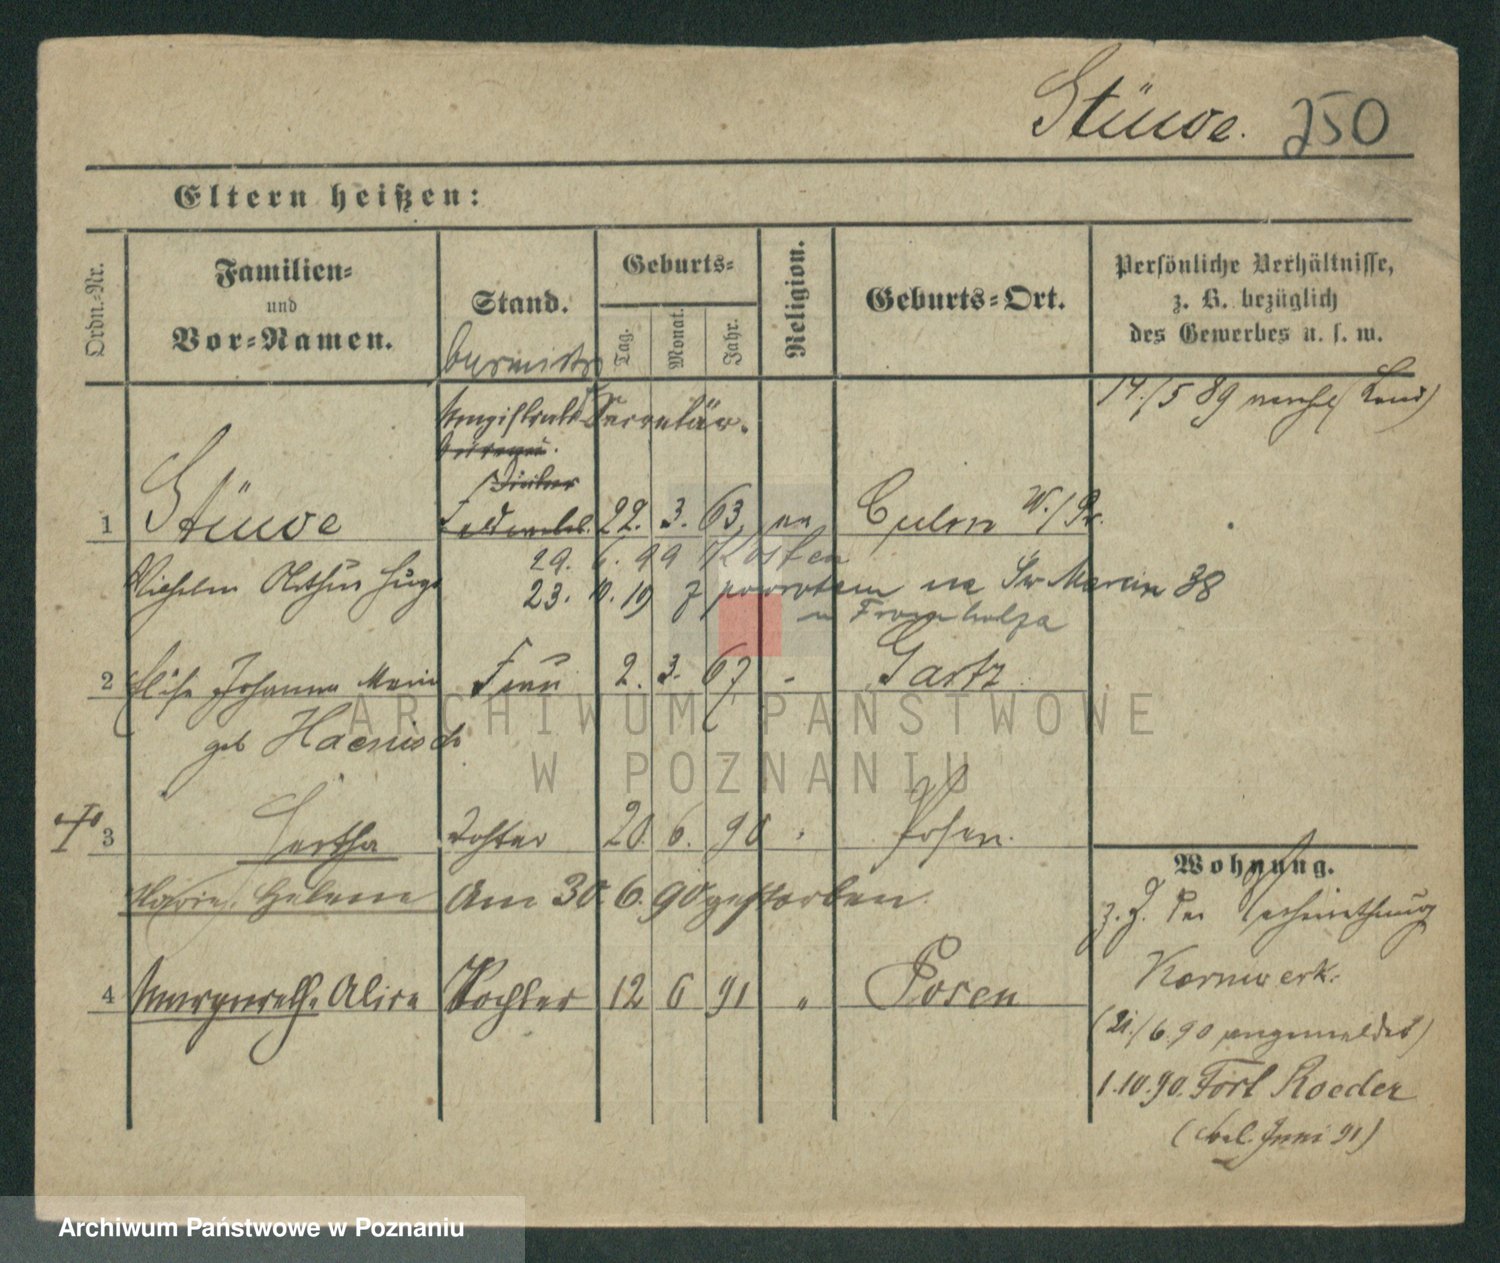 Stüwe. 250
Eltern heißen:
Ordn.-Nr.
Familien-
und
Vor-Namen.
Stand.
burmistrz
Geburts-
Tag.
Monat.
Jahr.
Religion.
Geburts-Ort.
Persönliche Verhältnisse,
z. B. bezüglich
des Gewerbes u. s. w.
14./5 89
Magistrats Secretär.
1 Stüwe Feldwebel. 22. 3. 63 Culm W./Pr.
29. 6. 99 Kosten
Wilhelm Arthur Hugo
23. 10. 19 z powrotem na Św Marcin 38
u Fromholza
2 Elise Johanna Marie Frau 2. 3. 67 " Gartz
geb Haenisch
ARCHIWUM PAŃSTWOWE
W POZNANIU
3 Hertha Tochter 20. 6. 90 " Posen.
Marie Helene Am 30. 6. 90 gestorben.
4 Margarethe Alice Tochter 12 6 91 " Posen
Wohnung.
z. Z. bei
Kernwerk.
(21./6.90 angemeldet)
1.10.90. Fort Roeder
(Juni 91)
Archiwum Państwowe w Poznaniu